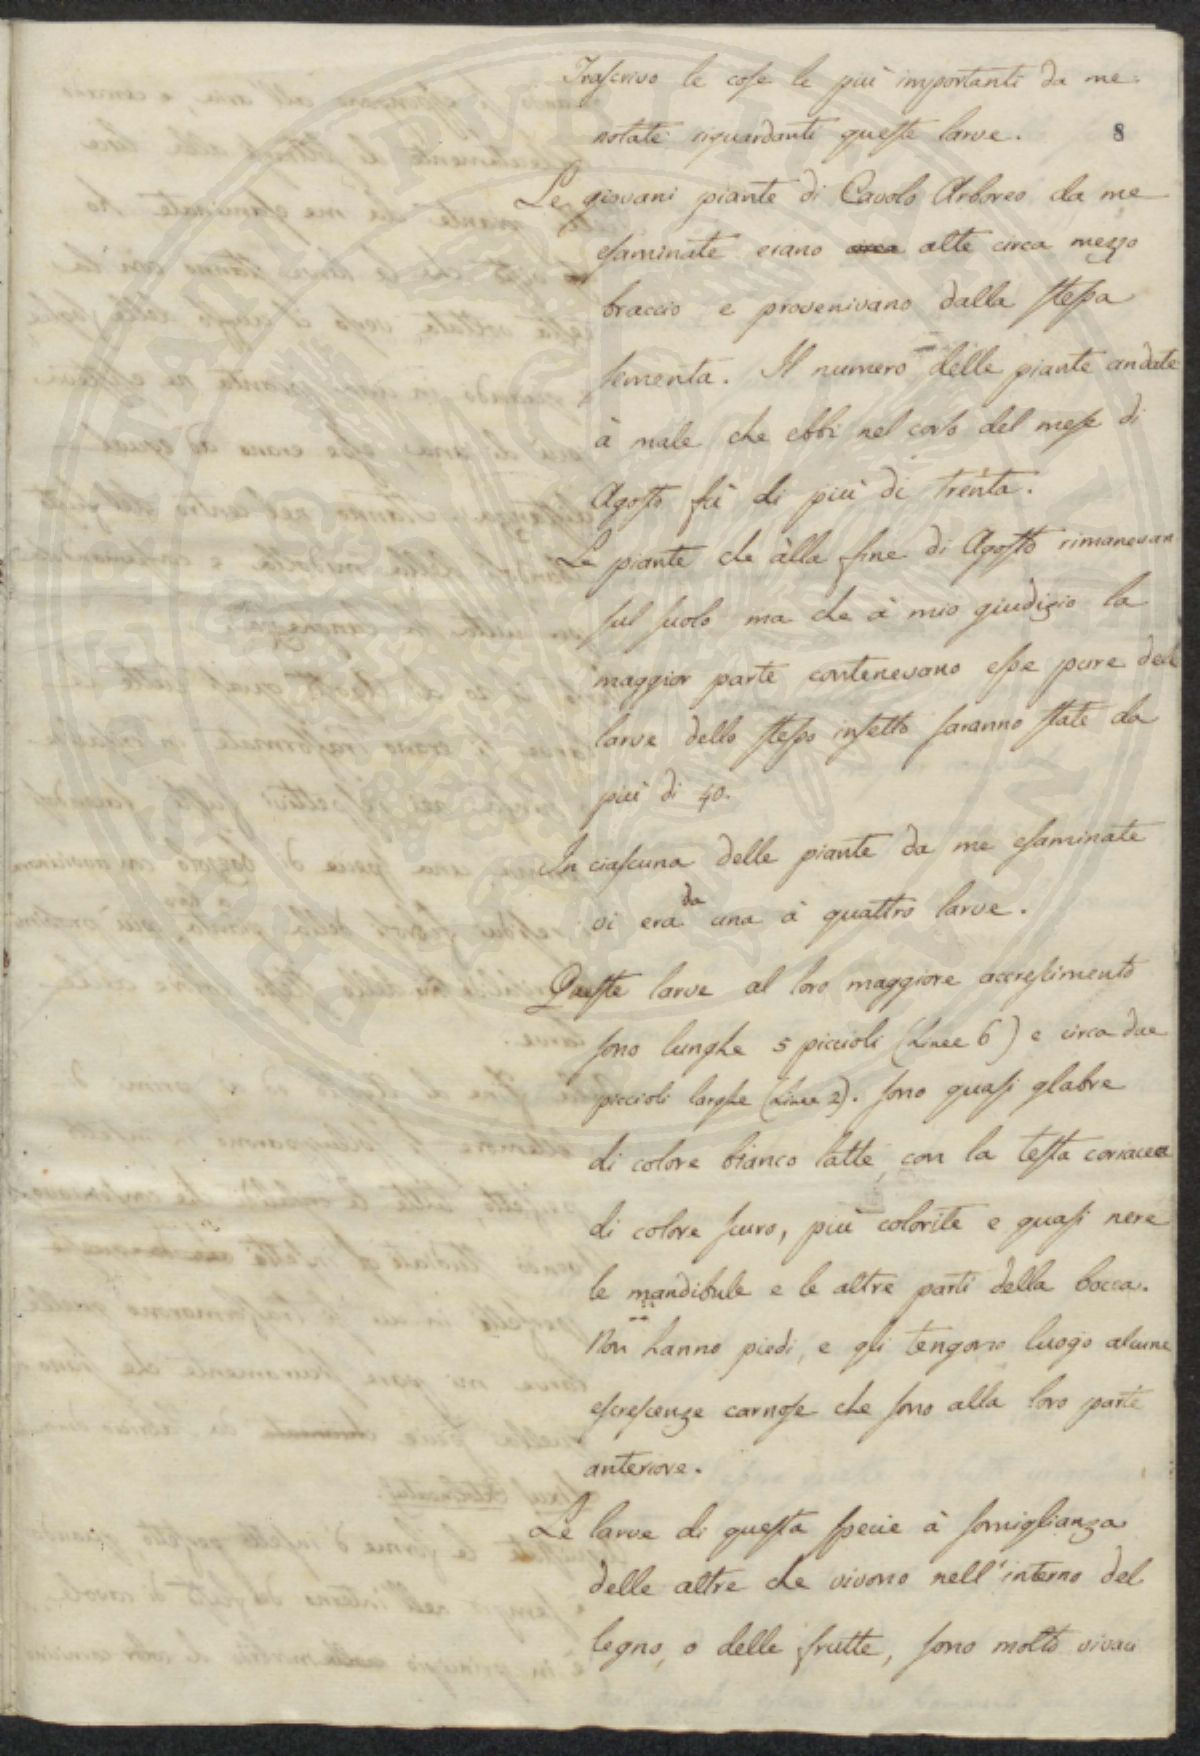 Trascrivo le cose le più importanti da me
notate riguardanti queste larve.
8
Le giovani piante di Cavolo Arboreo da me
esaminate erano circa alte circa mezzo
braccio e provenivano dalla stessa
sementa. Il numero delle piante andate
à male che ebbi nel corso del mese di
Agosto fù di più di trenta.
Le piante che àlla fine di Agosto rimanevan
sul suolo ma che à mio giudizio la
maggior parte contenevano esse pure delle
larve dello stesso insetto saranno state da
più di 40.
In ciascuna delle piante da me esaminate
vi era da una à quattro larve.
Queste larve al loro maggiore accrescimento
sono lunghe 5 piccioli (Linee 6) e circa due
piccioli larghe (Linee 2). sono quasi glabre
di colore bianco latte, con la testa coriacea
di colore scuro, più colorite e quasi nere
le mandibule e le altre parti della bocca.
Non hanno piedi, e gli tengono luogo alcune
escrescenze carnose che sono alla loro parte
anteriore.
Le larve di questa specie à somiglianza
delle altre che vivono nell'interno del
legno, o delle frutte, sono molto vivaci